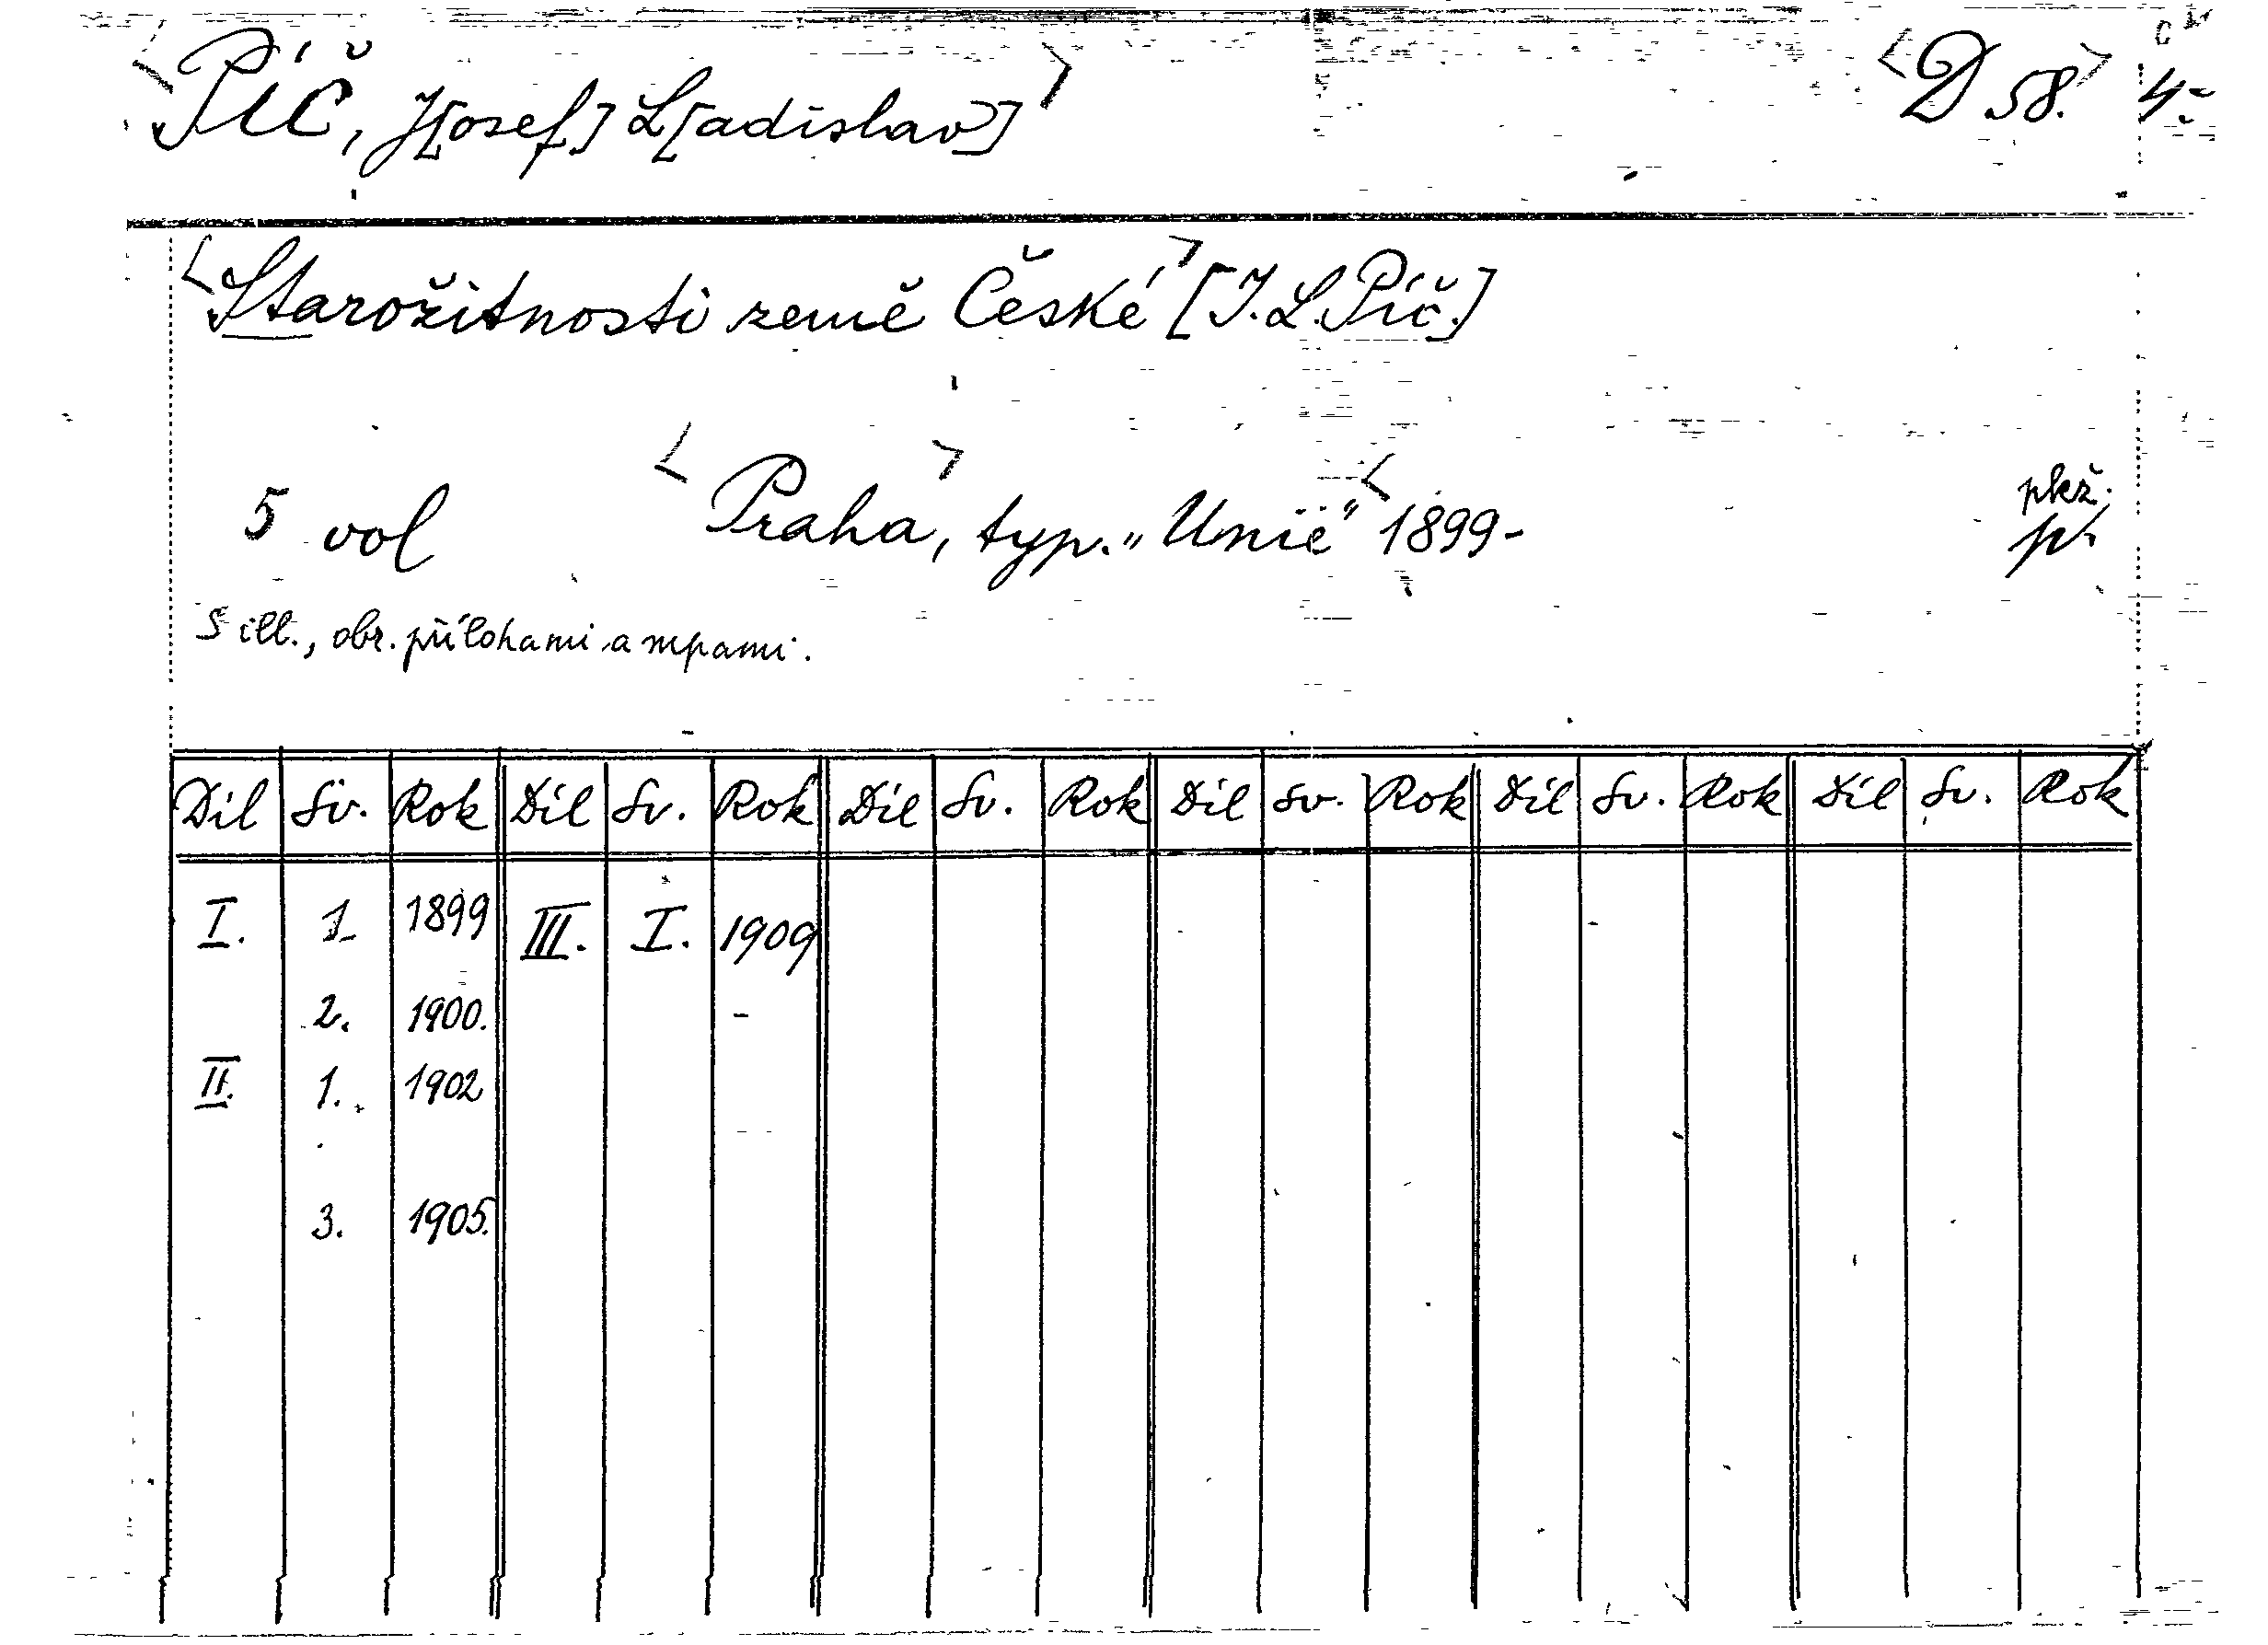 Píč, J[osef] L[adislav] D 58. 4:
Starožitnosti země České [J. L. Píč.]
pkž.
5 vol Praha, typ. „Unie“ 1899- p.
S ill., obr. přílohami a mpami.
Díl Sv. Rok Díl Sv. Rok Díl Sv. Rok Díl Sv. Rok Díl Sv. Rok Díl Sv. Rok
I. 1. 1899 III. I. 1909
2. 1900.
II. 1. 1902
3. 1905.